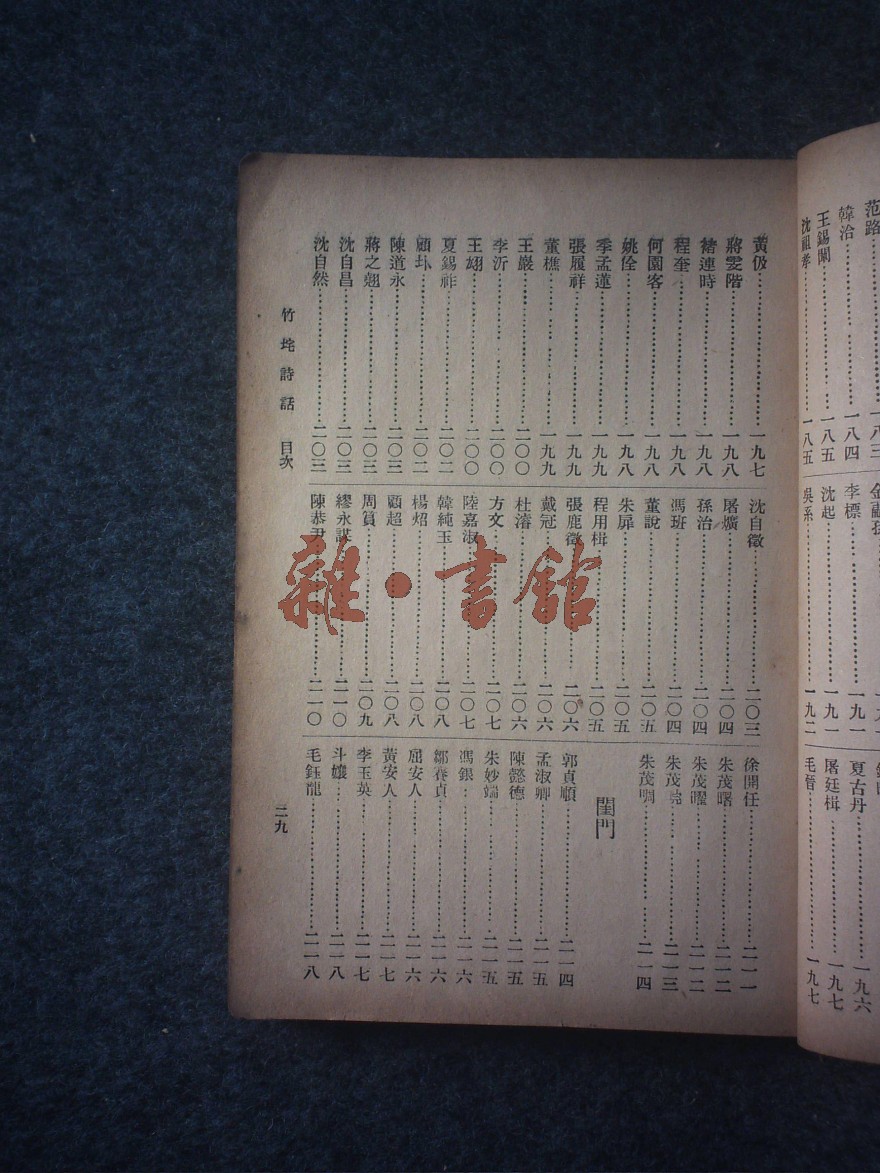 范路……一八三
韓洽……一八四
王錫闡……一八五
沈祖孝……一八五
李標……一九一
沈起……一九一
吳系……一九二
夏古丹……一九六
屠廷楫……一九七
毛晉……一九七
黃伋……一九七
蔣雯階……一九八
褚連時……一九八
程奎……一九八
何園客……一九八
姚佺……一九八
季孟蓮……一九九
張履祥……一九九
董樵……一九九
王巖……二〇〇
李沂……二〇〇
王翃……二〇〇
夏錫祚……二〇二
顧圤……二〇二
陳道永……二〇三
蔣之翹……二〇三
沈自昌……二〇三
沈自然……二〇三
沈自徵……二〇三
屠爌……二〇四
孫治……二〇四
馮班……二〇四
董說……二〇五
朱扉……二〇五
程用楫……二〇五
張鹿徵……二〇六
戴冠……二〇六
杜濬……二〇六
方文……二〇七
陸嘉淑……二〇七
韓純玉……二〇八
楊炤……二〇八
顧超……二〇八
周篔……二〇九
繆永謀……二一〇
陳恭尹……二一〇
徐開任……二一一
朱茂曙……二一二
朱茂曜……二一二
朱茂晥……二一三
朱茂晭……二一四
閨門
郭貞順……二一四
孟淑卿……二一五
陳懿德……二一五
朱妙端……二一五
馮銀……二一六
鄒賽貞……二一六
屈安人……二一六
黃安人……二一七
李玉英……二一七
斗孃……二一八
毛鈺龍……二一八
竹垞詩話 目次
二九
雜·書館